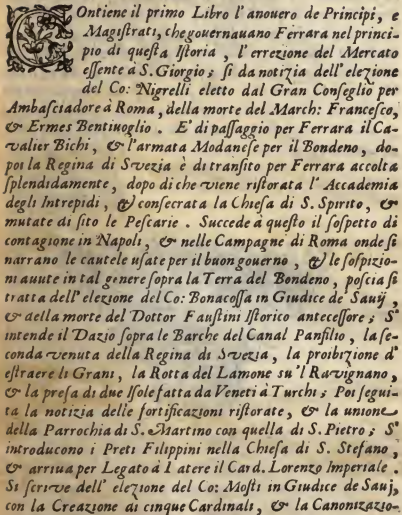 COntiene il primo Libro l'anouero de Principi, e
Magistrati, che gouernauano Ferrara nel princi-
pio di questa Istoria, l'errezione del Mercato
essente à S. Giorgio; si da notizia dell'elezione
del Co: Nigrelli eletto dal Gran Conseglio per
Ambasciadore à Roma, della morte del March: Francesco,
& Ermes Bentiuoglio. E' di passaggio per Ferrara il Ca-
valier Bichi, & l'armata Modanese per il Bondeno, do-
poi la Regina di Svezia è di transito per Ferrara accolta
splendidamente, dopo di che viene ristorata l'Accademia
degli Intrepidi, & consecrata la Chiesa di S. Spirito, &
mutate di sito le Pescarie. Succede à questo il sospetto di
contagione in Napoli, & nelle Campagne di Roma onde si
narrano le cautele usate per il buon gouerno, & le sospizio-
ni auute in tal genere sopra la Terra del Bondeno, poscia si
tratta dell'elezione del Co: Bonacossa in Giudice de Sauij,
& della morte del Dottor Faustini Istorico antecessore; S'
intende il Dazio sopra le Barche del Canal Panfilio, la se-
conda venuta della Regina di Svezia, la proibizione d'
estraere li Grani, la Rotta del Lamone su'l Ravignano,
& la presa di due Isole fatta da Veneti à Turchi; Poi segui-
ta la notizia delle fortificazioni ristorate, & la unione
della Parrochia di S. Martino con quella di S. Pietro; S'
introducono i Preti Filippini nella Chiesa di S. Stefano,
& arriua per Legato à Latere il Card. Lorenzo Imperiale.
Si scrive dell'elezione del Co: Mosti in Giudice de Sauj,
con la Creazione di cinque Cardinali, & la Canonizazio-